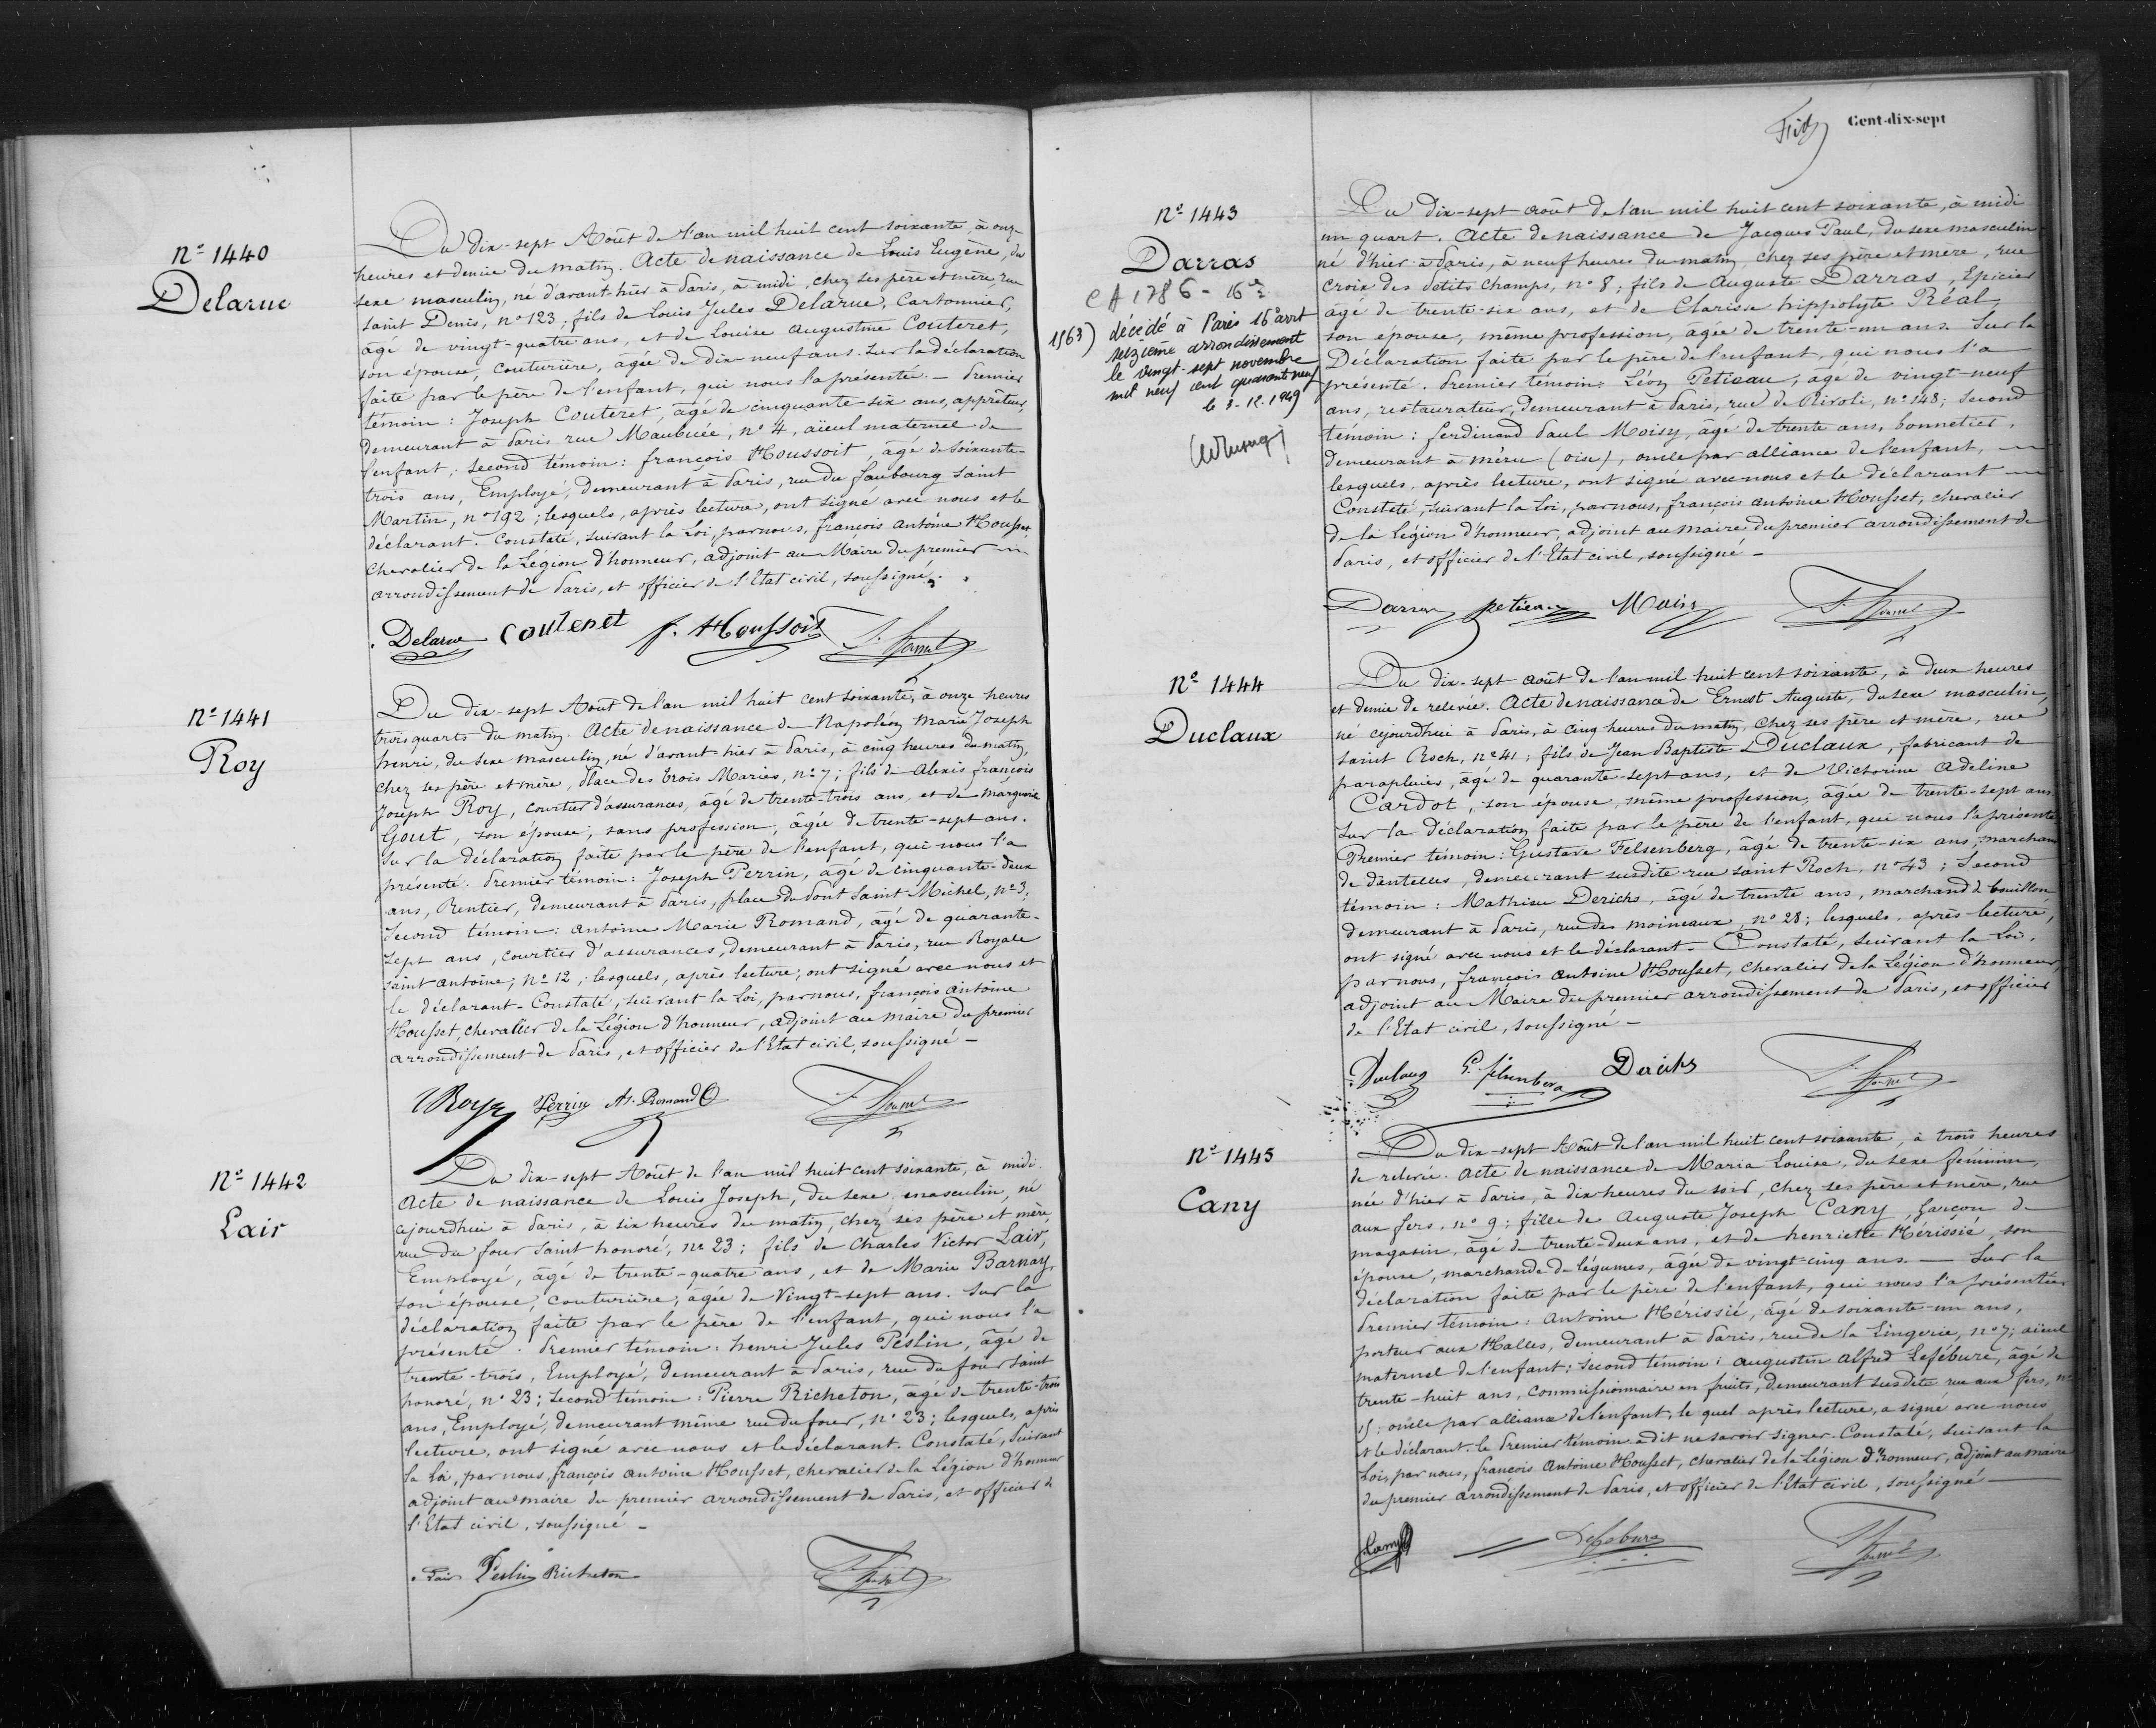 N.º 1440
Delarue
Du dix-sept Août de l'an mil huit cent soixante, à onze
heures et demie du matin. Acte de naissance de Louis Eugène, du
sexe masculin, né d'avant-hier à Paris, à midi, chez ses père et mère, rue
saint Denis, nº 123; fils de Louis Jules Delarue, Cartonnier,
âgé de vingt-quatre ans, et de Louise augustine Couteret,
son épouse, couturière, âgée de dix-neuf ans. Sur la déclaration
faite par le père de l'enfant, qui nous l'a présenté. — Premier
témoin: Joseph Couteret, âgé de cinquante-six ans, apprêteur,
demeurant à Paris rue Maubuée, nº 4, aïeul maternel de
l'enfant; second témoin: françois Houssoit, âgé de soixante-
trois ans, Employé, demeurant à Paris, rue du faubourg saint
Martin, nº 192; lesquels, après lecture, ont signé avec nous et le
déclarant. Constaté, suivant la Loi, par nous, françois antoine Housset,
chevalier de la Légion d'honneur, adjoint au Maire du premier
arrondissement de Paris, et officier de l'Etat civil, soussigné.
Delarue Couteret f. Houssoit F. Housset
N.º 1441
Roy
Du dix-sept Août de l'an mil huit cent soixante, à onze heures
trois quarts du matin. Acte de naissance de Napoléon Marie Joseph
henri, du sexe masculin, né d'avant-hier à Paris, à cinq heures du matin,
chez ses père et mère, Place des trois Maries, nº 7; fils de Alexis françois
Joseph Roy, courtier d'assurances, âgé de trente-trois ans, et de Marguerite
Gout, son épouse, sans profession, âgée de trente-sept ans.
Sur la déclaration faite par le père de l'enfant, qui nous l'a
présenté. Premier témoin: Joseph Perrin, âgé de cinquante-deux
ans, Rentier, demeurant à Paris, place du Pont Saint-Michel, nº 3;
second témoin: antoine Marie Romand, âgé de quarante-
sept ans, courtier d'assurances, demeurant à Paris, rue Royale
saint antoine, nº 12; lesquels, après lecture, ont signé avec nous et
le déclarant. Constaté, suivant la Loi, par nous, françois antoine
Housset, chevalier de la Légion d'honneur, adjoint au maire du premier
arrondissement de Paris, et officier de l'Etat civil, soussigné —
Roy Perrin At. Romand F. Housset
N.º 1442
Lair
Du dix-sept Août de l'an mil huit cent soixante, à midi.
Acte de naissance de Louis Joseph, du sexe masculin, né
cejourdhui à Paris, à six heures du matin, chez ses père et mère,
rue du four saint honoré, nº 23; fils de Charles Victor Lair,
Employé, âgé de trente-quatre ans, et de Marie Barnay,
son épouse, couturière, âgée de Vingt-sept ans. Sur la
déclaration faite par le père de l'enfant, qui nous l'a
présenté. Premier témoin: henri Jules Peslin, âgé de
trente-trois, Employé, demeurant à Paris, rue du four saint
honoré, nº 23; second témoin: Pierre Richeton, âgé de trente-trois
ans, Employé, demeurant même rue du four, nº 23; lesquels, après
lecture, ont signé avec nous et le déclarant. Constaté, suivant
la Loi, par nous, françois antoine Housset, chevalier de la Légion d'honneur
adjoint au maire du premier arrondissement de Paris, et officier de
l'Etat civil, soussigné —
Lair Peslin Richeton F. Housset
Cent-dix-sept
N.º 1443
Darras
1786 - 16e
1963) décédé à Paris 16e arrt
seizième arrondissement
le vingt-sept novembre
mil neuf cent quarante neuf
le 3-12-1949
Du dix-sept août de l'an mil huit cent soixante, à midi
un quart. Acte de naissance de Jacques Paul, du sexe masculin
né d'hier à Paris, à neuf heures du matin, chez ses père et mère, rue
croix des Petits Champs, nº 8; fils de Auguste Darras, Epicier
âgé de trente-six ans, et de Clarisse hippolyte Réal,
son épouse, même profession, âgée de trente-un ans. Sur la
Déclaration faite par le père de l'enfant, qui nous l'a
présenté. Premier témoin: Léon Petieau, âgé de vingt-neuf
ans, restaurateur, demeurant à Paris, rue de Rivoli, nº 148; second
témoin: ferdinand Paul Moisy, âgé de trente ans, bonnetier,
demeurant à méru (oise), oncle par alliance de l'enfant,
lesquels, après lecture, ont signé avec nous et le déclarant
Constaté, suivant la Loi, par nous, françois antoine Housset, chevalier
de la Légion d'honneur, adjoint au maire du premier arrondissement de
Paris, et officier de l'Etat civil, soussigné —
Darras Petieau Moisy F. Housset
N.º 1444
Duclaux
Du dix-sept août de l'an mil huit cent soixante, à deux heures
et demie de relevée. Acte de naissance de Ernest Auguste, du sexe masculin,
né cejourdhui à Paris, à cinq heures du matin, chez ses père et mère, rue
saint Roch, nº 41; fils de Jean Baptiste Duclaux, fabricant de
parapluies, âgé de quarante-sept ans, et de Victorine Adeline
Cardot, son épouse, même profession, âgée de trente-sept ans.
Sur la déclaration faite par le père de l'enfant, qui nous l'a présenté
Premier témoin: Gustave Felsenberg, âgé de trente-six ans, marchand
de dentelles, demeurant susdite rue saint Roch, nº 43; second
témoin: Mathieu Derichs, âgé de trente ans, marchand de bouillon
demeurant à Paris, rue des moineaux, nº 28; lesquels, après lecture,
ont signé avec nous et le déclarant. — Constaté, suivant la Loi,
par nous, françois antoine Housset, chevalier de la Légion d'honneur,
adjoint au Maire du premier arrondissement de Paris, et officier
de l'Etat civil, soussigné —
Duclaux G. Felsenberg Derichs F. Housset
N.º 1445
Cany
Du dix-sept Août de l'an mil huit cent soixante, à trois heures
de relevée. Acte de naissance de Maria Louise, du sexe féminin,
née d'hier à Paris, à dix heures du soir, chez ses père et mère, rue
aux fers, nº 9; fille de Auguste Joseph Cany, Garçon de
magasin, âgé de trente-deux ans, et de henriette Hérissié, son
épouse, marchande de légumes, âgée de vingt-cinq ans. — Sur la
déclaration faite par le père de l'enfant, qui nous l'a présentée
Premier témoin: Antoine Hérissié, âgé de soixante-un ans,
porteur aux Halles, demeurant à Paris, rue de la Lingerie, nº 7; aïeul
maternel de l'enfant; second témoin: augustin alfred Lefébure, âgé de
trente-huit ans, commissionnaire en fruits, demeurant susdite rue aux fers, nº
15; oncle par alliance de l'enfant, le quel après lecture, a signé avec nous
et le déclarant. le Premier témoin a dit ne savoir signer. Constaté, suivant la
Loi, par nous, françois Antoine Housset, chevalier de la Légion d'honneur, adjoint au maire
du premier arrondissement de Paris, et officier de l'Etat civil, soussigné —
Cany Lefebure F. Housset